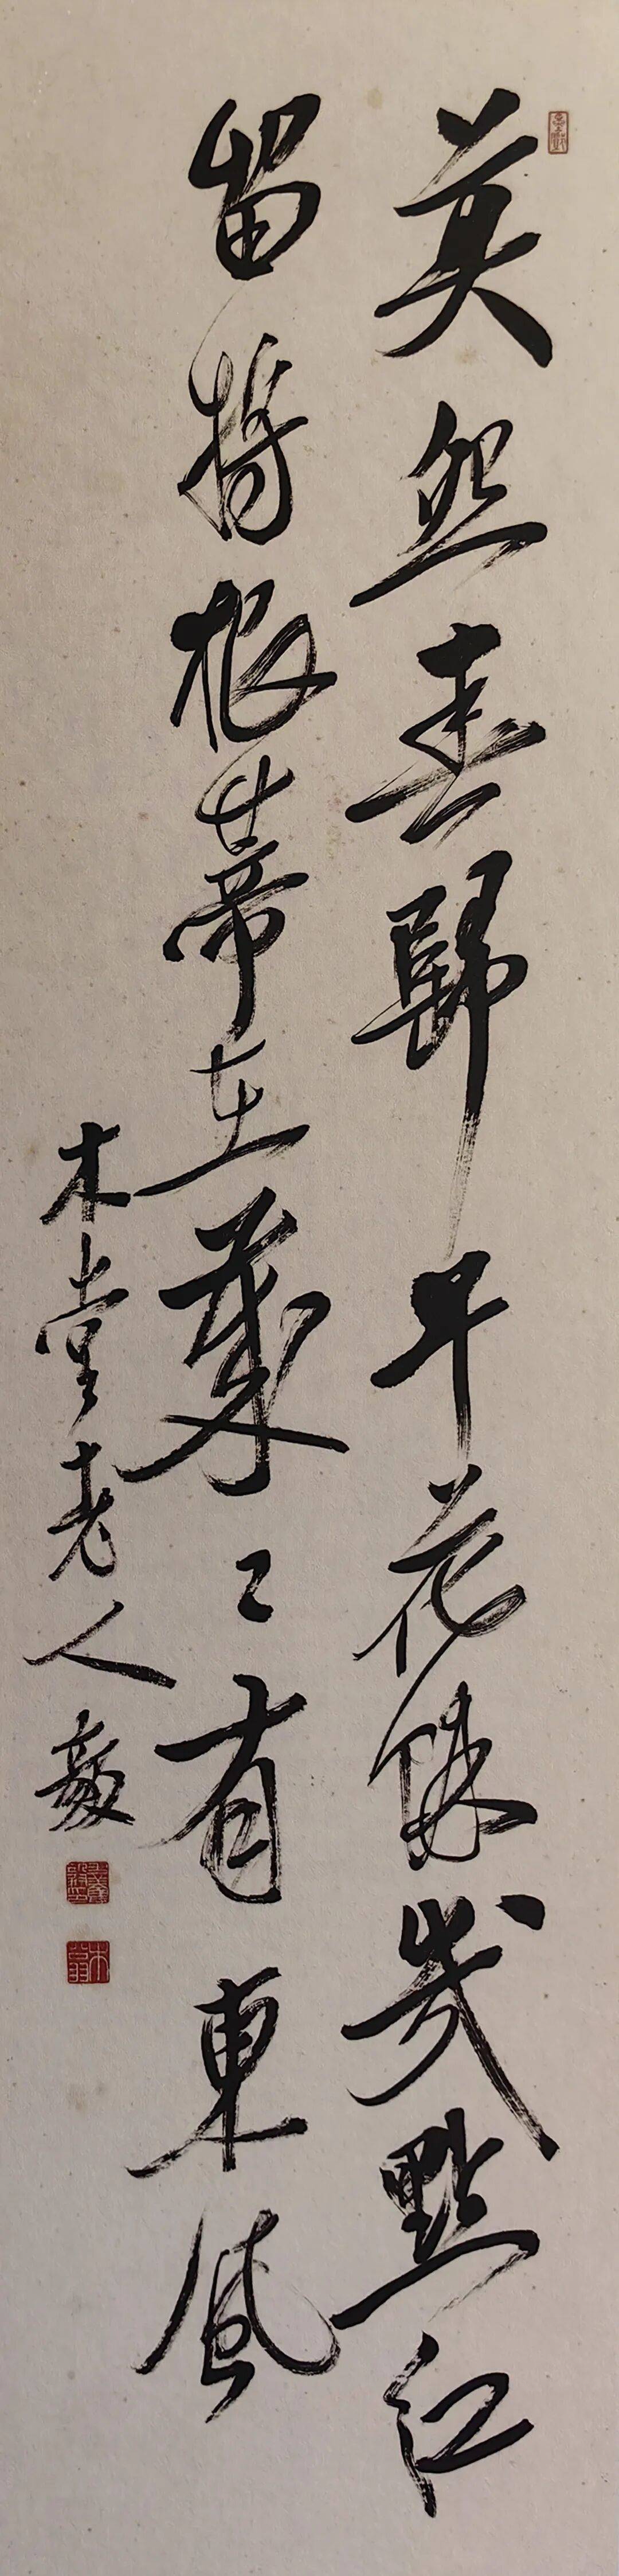 莫怨春歸早花餘幾點紅
留将根蒂在歳々有東風
木堂老人毅